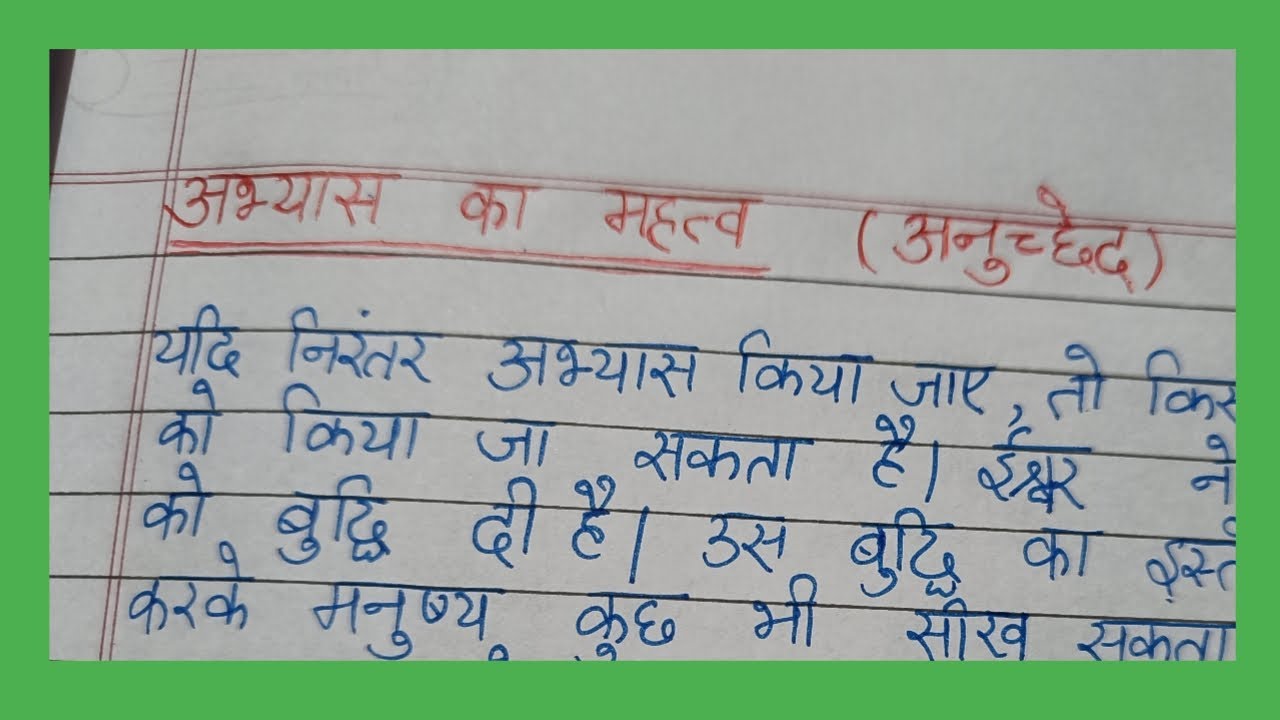 अभ्यास का महत्व (अनुच्छेद)
यदि निरंतर अभ्यास किया जाए, तो
को किया जा सकता है। ईश्वर ने
को बुद्धि दी है। उस बुद्धि का
करके मनुष्य कुछ भी सीख सकता